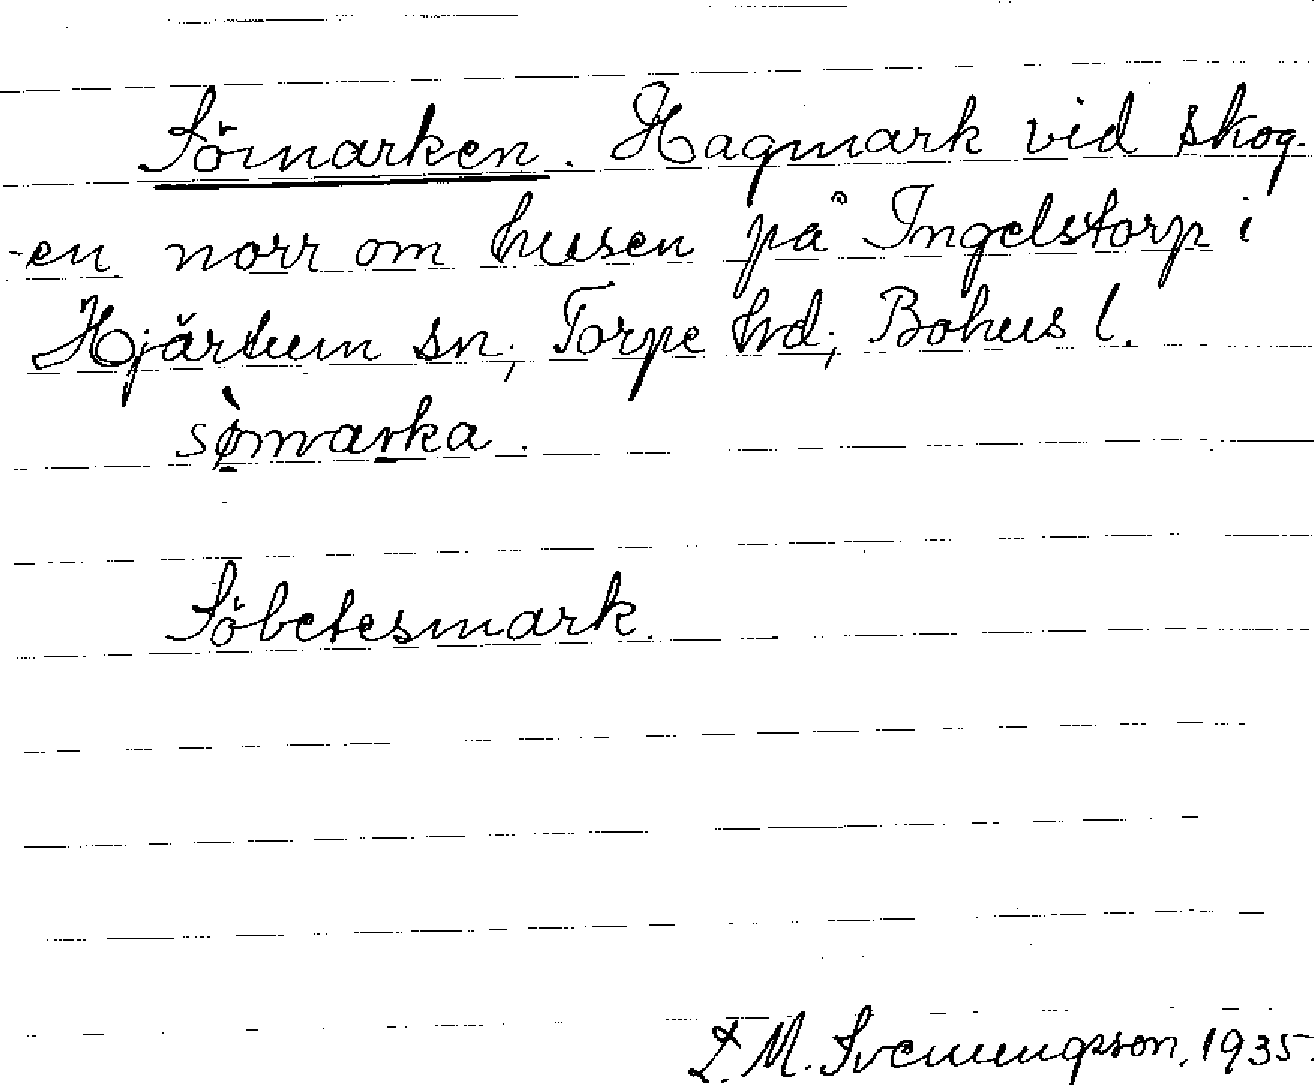 Sömarken. Hagmark vid skog-
-en norr om husen på Ingelstorp i
Hjärtum sn; Torpe hd; Bohus l.
sø̀marka.
Söbetesmark.
M. Svenungsson, 1935.